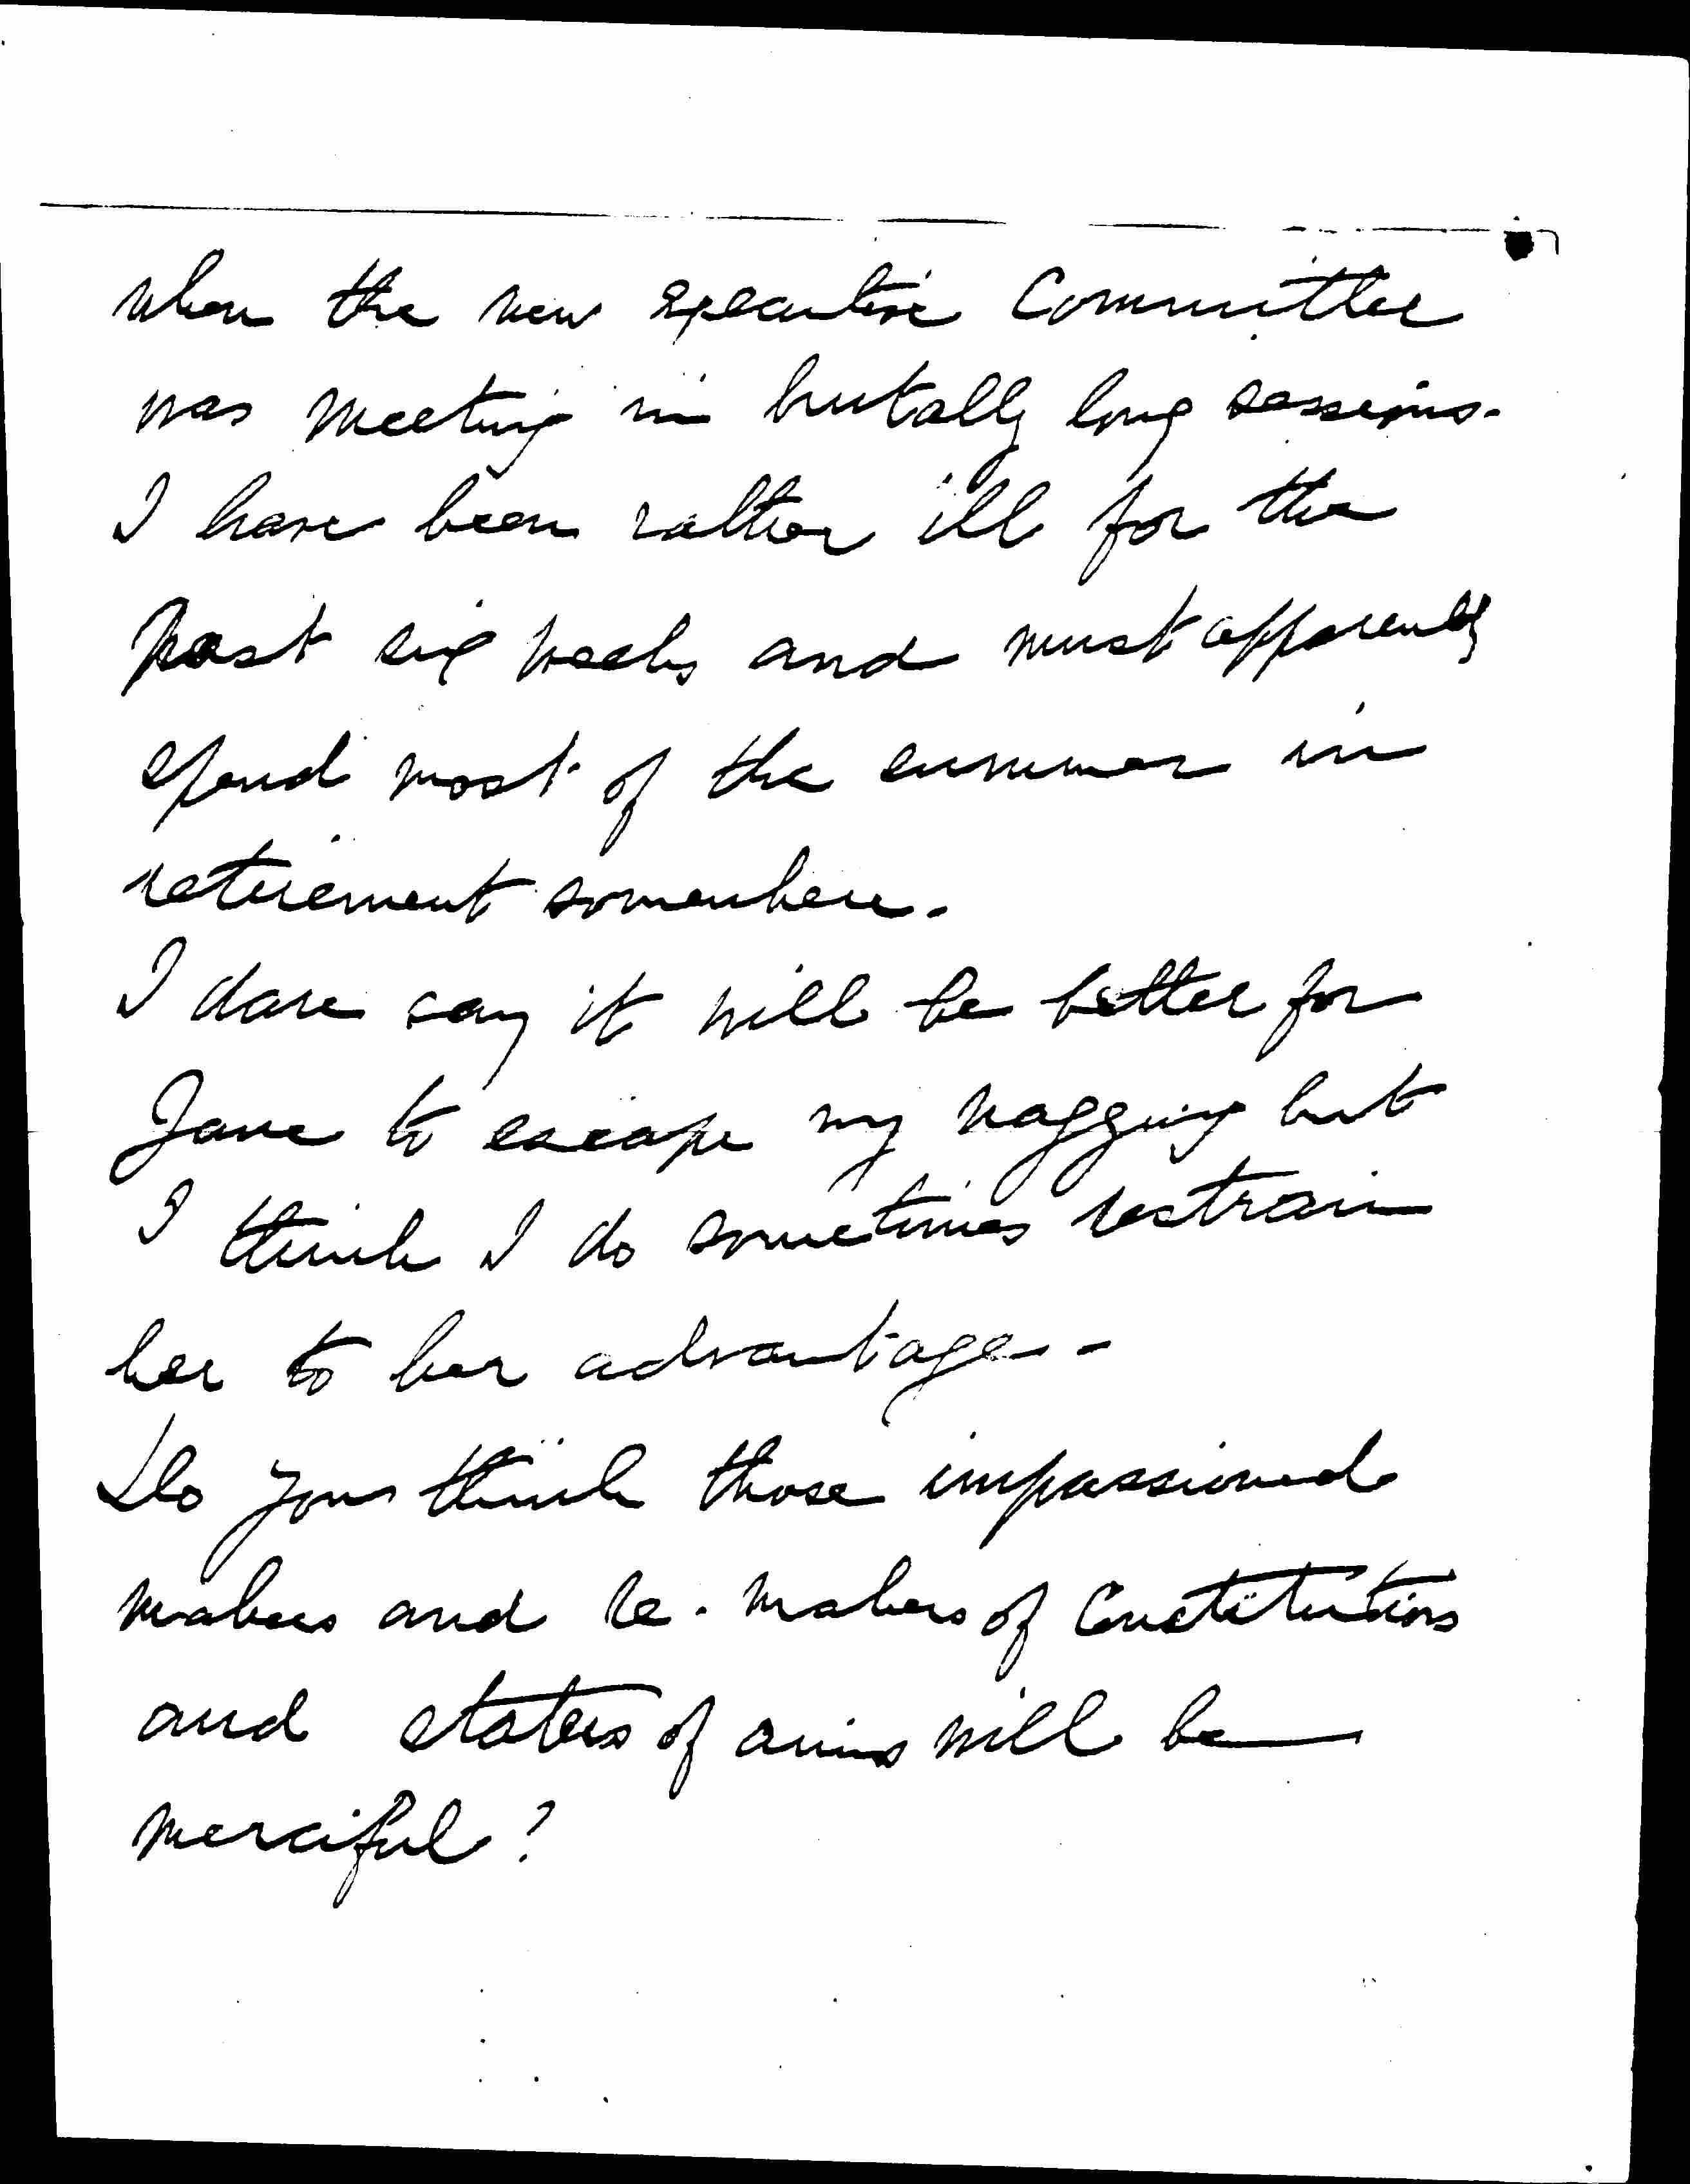 when the new executive Committee
was meeting in brutally long sessions.
I have been rather ill for the
past six weeks and must apparently
spend most of the summer in
retirement somewhere.
I dare say it will be better for
Jane to escape my nagging but
I think I do sometimes restrain
her to her advantage.
Do you think those impassioned
makers and re-makers of Constitutions
and staters of aims will be
merciful?